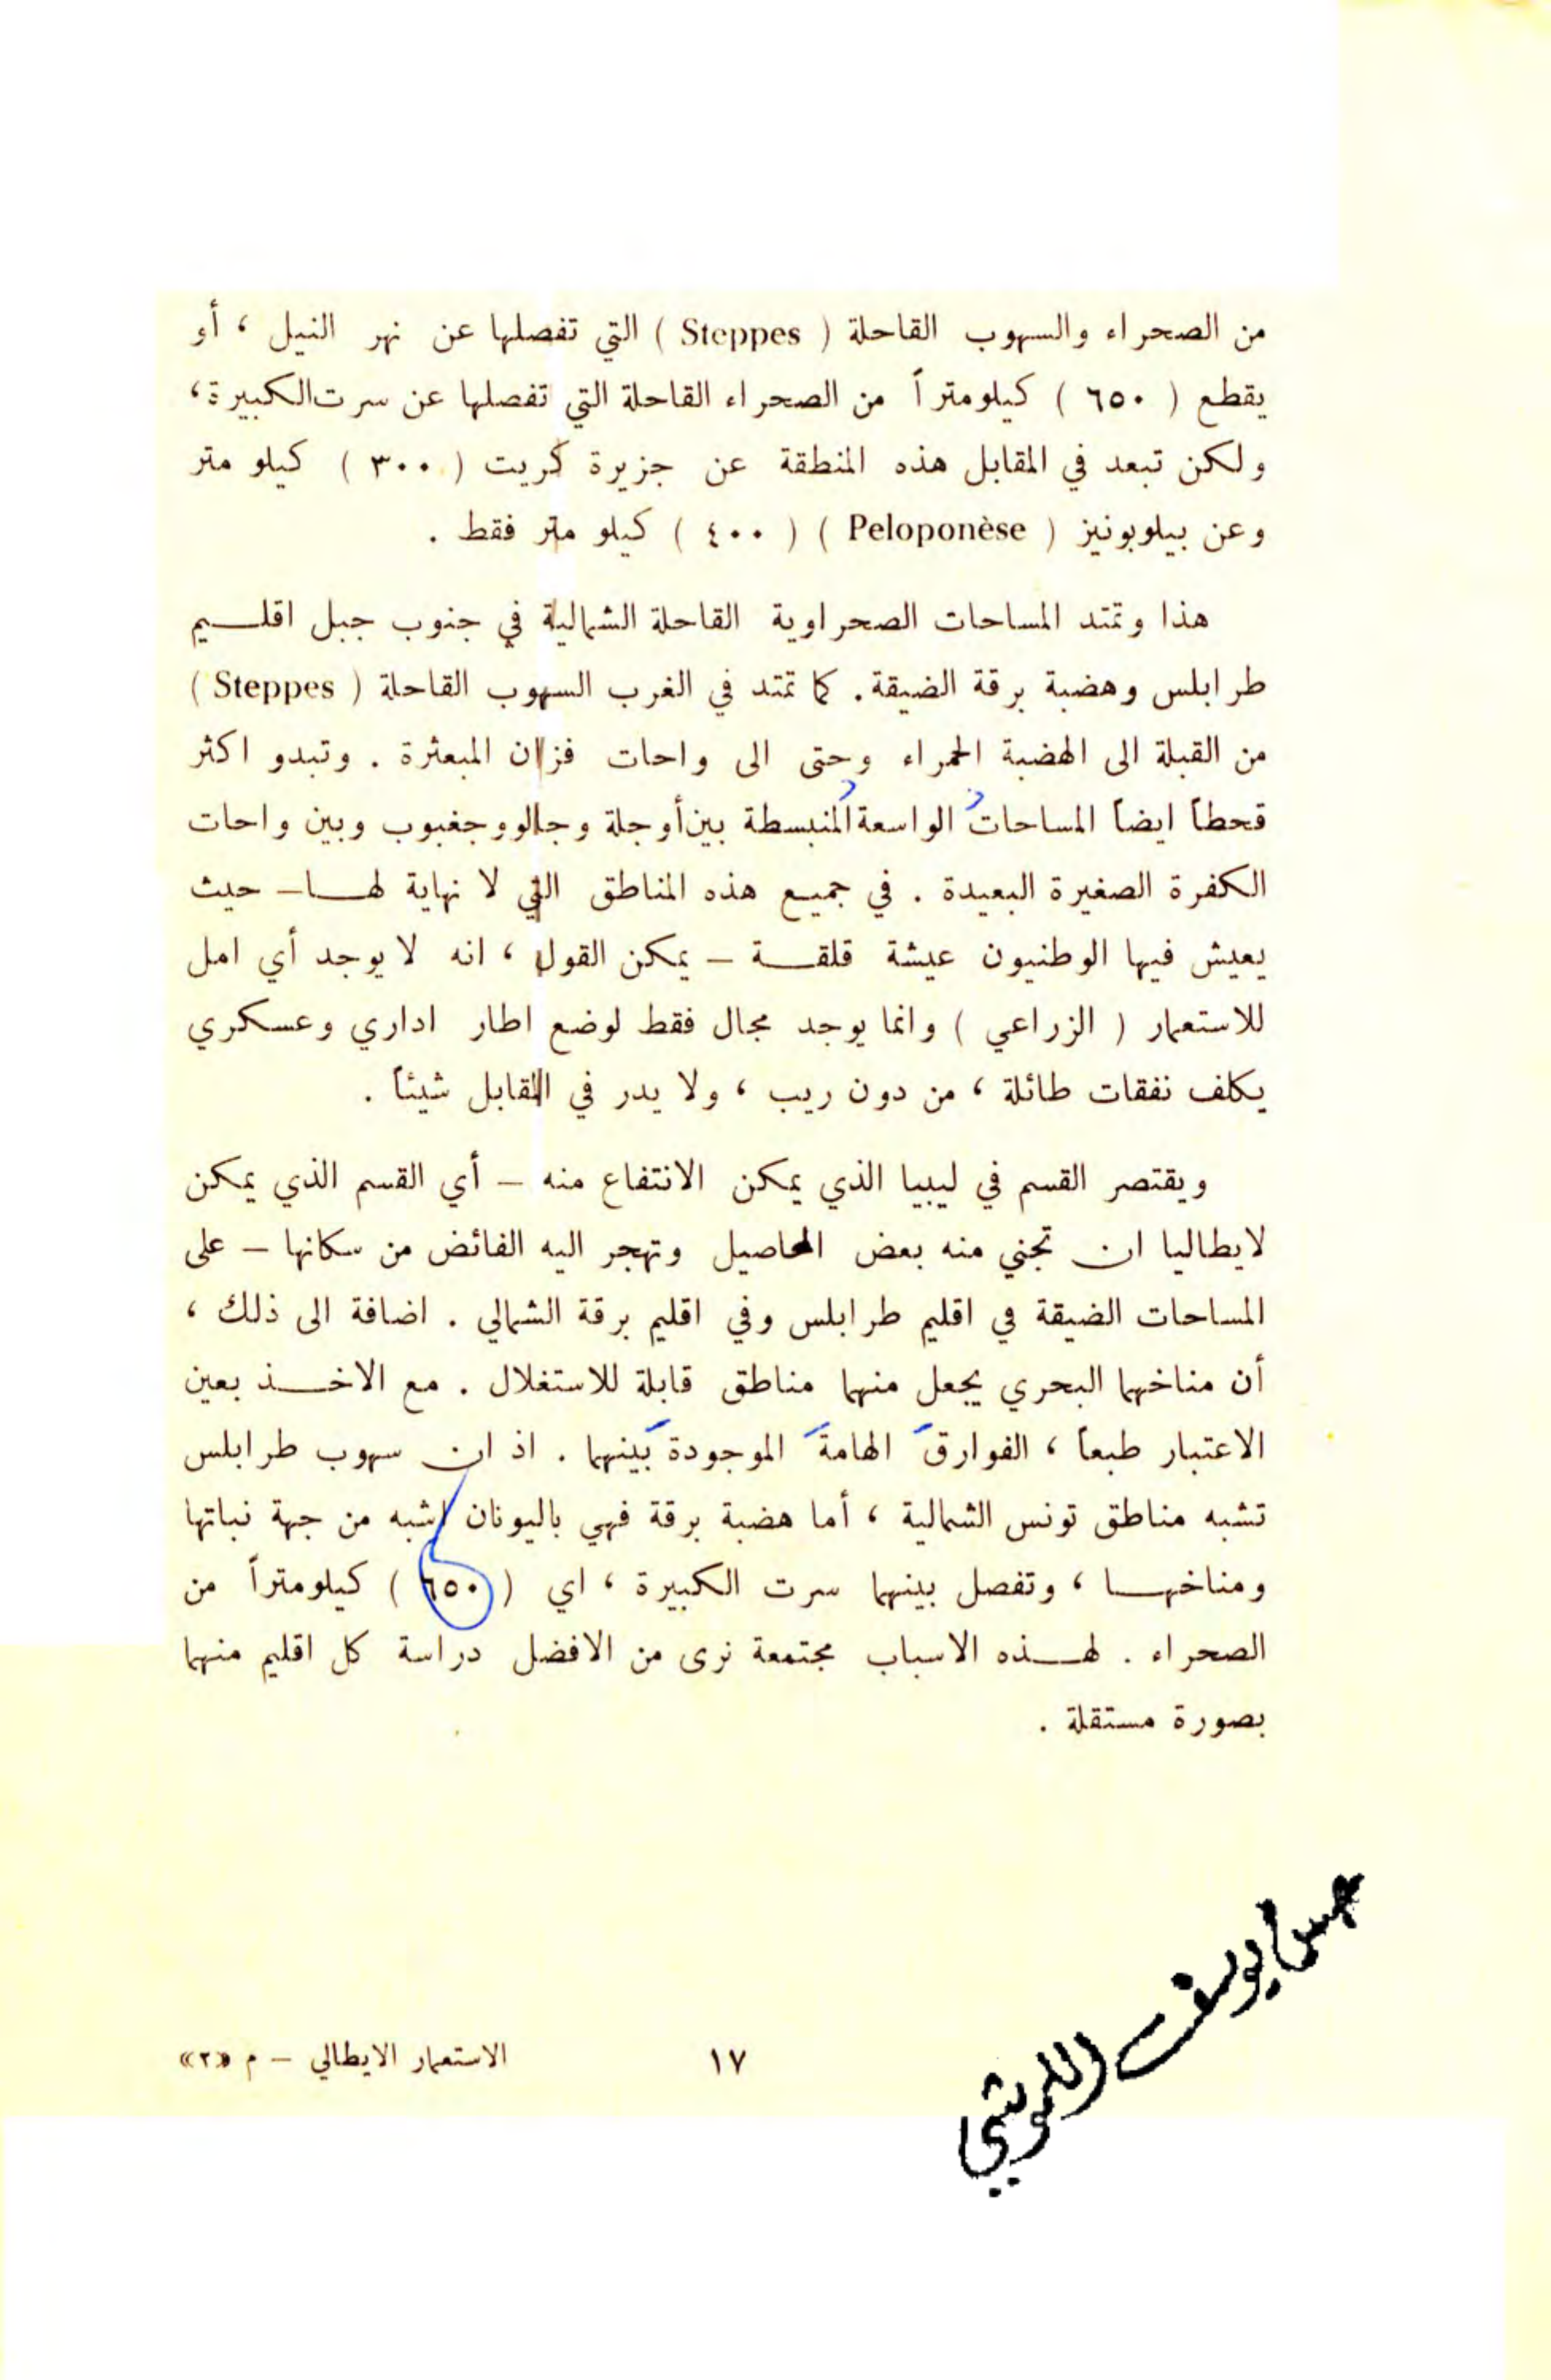 من الصحراء والسهوب القاحلة ( Steppes ) التي تفصلها عن نهر النيل ، أو
يقطع ( ٦٥٠ ) كيلومتراً من الصحراء القاحلة التي تفصلها عن سرت الكبيرة ،
ولكن تبعد في المقابل هذه المنطقة عن جزيرة كريت ( ٣٠٠ ) كيلو متر
وعن بيلوبونيز ( Peloponèse ) ( ٤٠٠ ) كيلو متر فقط .
هذا وتمتد المساحات الصحراوية القاحلة الشمالية في جنوب جبل اقلـــيم
طرابلس وهضبة برقة الضيقة . كما تمتد في الغرب السهوب القاحلة ( Steppes )
من القبلة الى الهضبة الحمراء وحتى الى واحات فزان المبعثرة . وتبدو اكثر
قحطاً ايضاً المساحاتُ الواسعةُ المنبسطة بين أوجلة وجالو وجغبوب وبين واحات
الكفرة الصغيرة البعيدة . في جميع هذه المناطق التي لا نهاية لهـــا – حيث
يعيش فيها الوطنيون عيشة قلقـــة – يمكن القول ، انه لا يوجد أي امل
للاستعمار ( الزراعي ) وانما يوجد مجال فقط لوضع اطار اداري وعسكري
يكلف نفقات طائلة ، من دون ريب ، ولا يدر في المقابل شيئاً .
ويقتصر القسم في ليبيا الذي يمكن الانتفاع منه – أي القسم الذي يمكن
لايطاليا ان تجني منه بعض المحاصيل وتهجر اليه الفائض من سكانها – على
المساحات الضيقة في اقليم طرابلس وفي اقليم برقة الشمالي . اضافة الى ذلك ،
أن مناخهما البحري يجعل منهما مناطق قابلة للاستغلال . مع الاخـــذ بعين
الاعتبار طبعاً ، الفوارقَ الهامةَ الموجودة بَينهما . اذ ان سهوب طرابلس
تشبه مناطق تونس الشمالية ، أما هضبة برقة فهي باليونان اشبه من جهة نباتها
ومناخهـــا ، وتفصل بينهما سرت الكبيرة ، اي ( ٦٥٠ ) كيلومتراً من
الصحراء . لهـــذه الاسباب مجتمعة نرى من الافضل دراسة كل اقليم منهما
بصورة مستقلة .
يوسف
١٧
الاستعمار الايطالي – م «٢»